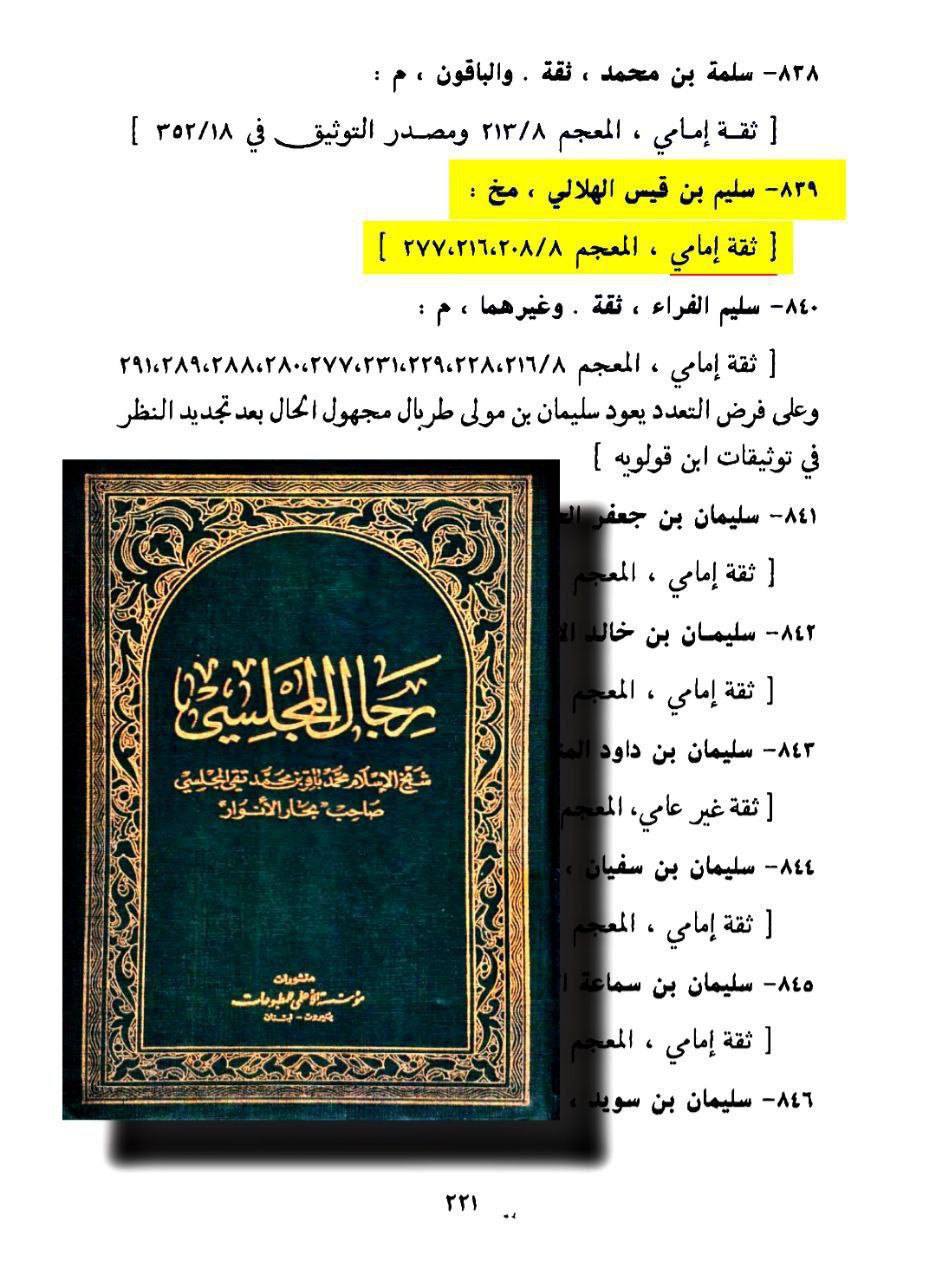 ٨٣٨- سلمة بن محمد ، ثقة . والباقون ، م :
[ ثقـة إمـامي ، المعجم ٢١٣/٨ ومصـدر التوثيق في ٣٥٢/١٨ ]
٨٣٩- سليم بن قيس الهلالي ، مخ :
[ ثقة إمامي ، المعجم ٢٧٧،٢١٦،٢٠٨/٨ ]
٨٤٠- سليم الفراء ، ثقة . وغيرهما ، م :
[ ثقة إمامي ، المعجم ٢٩١،٢٨٩،٢٨٨،٢٨٠،٢٧٧،٢٣١،٢٢٩،٢٢٨،٢١٦/٨
وعلى فرض التعدد يعود سليمان بن مولى طربال مجهول الحال بعد تجديد النظر
في توثيقات ابن قولويه ]
٨٤١- سليمان بن جعفر
[ ثقة إمامي ، المعجم
٨٤٢- سليمـان بن خالد
[ ثقة إمامي ، المعجم
٨٤٣- سليمان بن داود
[ ثقة غير عامي، المعجم
٨٤٤- سليمان بن سفيان ،
[ ثقة إمامي ، المعجم
٨٤٥- سليمان بن سماعة
[ ثقة إمامي ، المعجم
٨٤٦- سليمان بن سويد ،
رجال المجلسي
شيخ الإسلام محمد باقر بن محمد تقي المجلسي
صاحب "بحار الأنوار"
منشورات
مؤسسة الأعلمي للمطبوعات
بيروت - لبنان
٢٢١